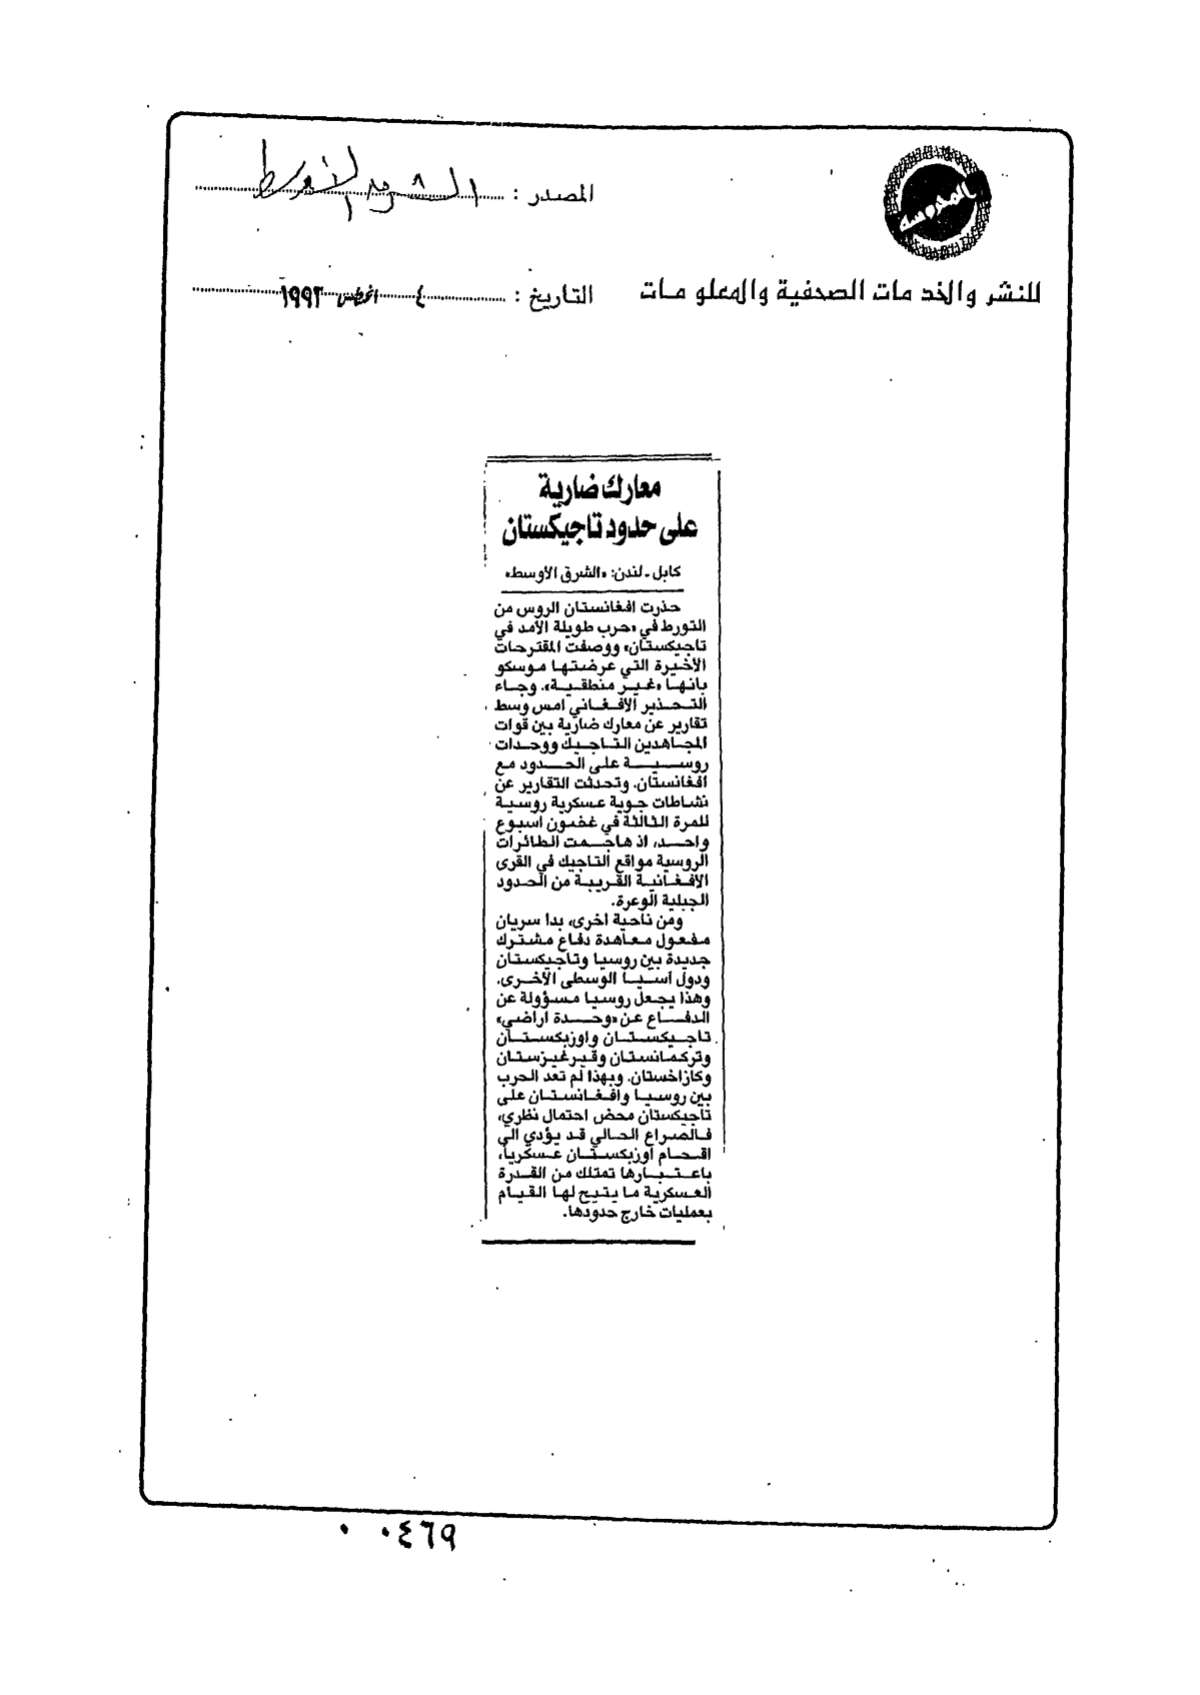 المصدر : الشرق الأوسط
المحروسة
للنشر والخدمات الصحفية والمعلومات
التاريخ : ٤ اغسطس ١٩٩٣
معارك ضارية
على حدود تاجيكستان
كابل ـ لندن: «الشرق الأوسط»
حذرت افغانستان الروس من
التورط في «حرب طويلة الأمد في
تاجيكستان» ووصفت المقترحات
الأخيرة التي عرضتها موسكو
بانها «غير منطقية». وجاء
التحذير الأفغاني امس وسط
تقارير عن معارك ضارية بين قوات
المجاهدين التاجيك ووحدات
روسية على الحدود مع
افغانستان. وتحدثت التقارير عن
نشاطات جوية عسكرية روسية
للمرة الثالثة في غضون اسبوع
واحد، اذ هاجمت الطائرات
الروسية مواقع التاجيك في القرى
الأفغانية القريبة من الحدود
الجبلية الوعرة.
ومن ناحية اخرى، بدا سريان
مفعول معاهدة دفاع مشترك
جديدة بين روسيا وتاجيكستان
ودول آسيا الوسطى الأخرى.
وهذا يجعل روسيا مسؤولة عن
الدفاع عن «وحدة اراضي»
تاجيكستان واوزبكستان
وتركمانستان وقيرغيزستان
وكازاخستان. وبهذا لم تعد الحرب
بين روسيا وافغانستان على
تاجيكستان محض احتمال نظري،
فالصراع الحالي قد يؤدي الى
اقحام اوزبكستان عسكرياً،
باعتبارها تمتلك من القدرة
العسكرية ما يتيح لها القيام
بعمليات خارج حدودها.
٠٠٤٦٩